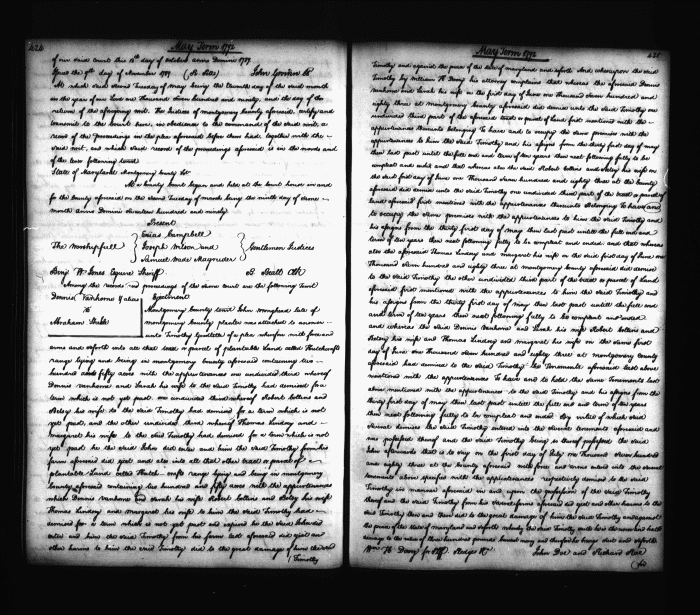 424
May Term 1792
of our said court this 15th day of october anno Domini 1789
Issued the 9th day of November 1789
John Gwinn Clk
At which said second Tuesday of may being the eleventh day of the said month
in the year of our Lord one Thousand seven hundred and ninety, and the day of the
return of the aforesaid writ. The Justices of montgomery county aforesaid, certify and
transmit to the court here, in obedience to the command of the said writ, a
record of the proceedings in the plea aforesaid before them had, together with the
said writ, and which said record of the proceedings aforesaid is in the words and
of the tenor following towit
State of Maryland Montgomery County Sct
At a county court begun and held at the court house in and
for the county aforesaid on the second Tuesday of march being the ninth day of the same
month anno Domini seventeen hundred and ninety
Present
The worshipfull
Enias Campbell
Joseph Wilson and
Samuel Wade Magruder
Gentlemen Justices
Benj. W Jones Esquire Sheriff
B. Beall Clk
Among the records and proceedings of the same court are the following towit
Dennis Vanhorne & alias
vs
Abraham
Ejectment
Montgomery County towit John late of
montgomery county planter was attached to answer
unto Timothy of a plea wherefore with force and
arms and so forth into all that tract or parcel of plantable Land called
range lying and being in montgomery county aforesaid containing two
hundred and fifty acres with the appurtenances one undivided third whereof
Dennis Vanhorne and Sarah his wife to the said Timothy had demised for a
term which is not yet past, one undivided third whereof Robert Collins and
Betsy his wife to the said Timothy had demised for a term which is not
yet past, and the other undivided third whereof Thomas Lindsey and
margaret his wife to the said Timothy had demised for a term which is not
yet past he the said John did enter and him the said Timothy from his
farm aforesaid did eject and also into all that other tract or parcel of
plantable Land called range lying and being in montgomery
county aforesaid containing two hundred and fifty acres with the appurtenances
which Dennis Vanhorne and Sarah his wife Robert Collins and Betsy his wife
Thomas Lindsey and margaret his wife to him the said Timothy had
demised for a term which is not yet past and expired he the said John did
enter and him the said Timothy from his farm last aforesaid did eject and
other harms to him the said Timothy did to the great damage of him the said
Timothy
May Term 1792
425
Timothy and against the peace of the state of maryland and so forth And whereupon the said
Timothy by William his attorney complains that whereas the aforesaid Dennis
Vanhorne and Sarah his wife on the first day of June one Thousand seven hundred and
eighty three at montgomery county aforesaid did demise unto the said Timothy one
undivided third part of the aforesaid tract or parcel of Land first mentioned with the
appurtenances thereunto belonging To have and to occupy the same premises with the
appurtenances to him the said Timothy and his assigns from the thirty first day of may
then last past untill the full end and term of ten years then next following fully to be
compleat and ended and that whereas also the said Robert Collins and Betsy his wife on
the said first day of June one Thousand seven hundred and eighty three at the county
aforesaid did demise unto the said Timothy one undivided third part of the tract or parcel of
Land aforesaid first mentioned with the appurtenances thereunto Belonging To have and
to occupy the same premises with the appurtenances to him the said Timothy and
his assigns from the thirty first day of may then last past untill the full end and
term of ten years then next following fully to be compleat and ended, and that whereas
also the aforesaid Thomas Lindsey and margaret his wife on the said first day of June one
Thousand seven hundred and eighty three at montgomery county aforesaid did demise
to the said Timothy the other undivided third part of the tract or parcel of Land
aforesaid first mentioned with the appurtenances to him the said Timothy and
his assigns from the thirty first day of may then last past untill the full end
and term of ten years then next following fully to be compleat and ended
and whereas the said Dennis Vanhorne and Sarah his wife Robert Collins and
Betsy his wife and Thomas Lindsey and margaret his wife on the same first
day of June one Thousand seven hundred and eighty three at montgomery county
aforesaid had demised to the said Timothy the Tenements aforesaid last above
mentioned with the appurtenances To have and to hold the same Tenements last
above mentioned with the appurtenances to the said Timothy and his assigns from the
thirty first day of may then last past untill the full end and term of ten years
then next following fully to be compleat and ended By virtue of which said
several demises the said Timothy entered into the several tenements aforesaid and
was possessed thereof and the said Timothy being so thereof possessed the said
John afterwards that is to say on the first day of July one Thousand seven hundred
and eighty three at the county aforesaid with force and arms entered into the several
tenements above specified with the appurtenances respectively demised to the said
Timothy in manner aforesaid in and upon the possession of the said Timothy
thereof and the said Timothy from his several farms aforesaid did eject and other harms to the
said Timothy then and there did to the great damage of him the said Timothy and against
the peace of the state of maryland and so forth whereby the said Timothy saith he is the worse and hath
damage to the value of three hundred pounds current money and therefore he brings suit and so forth
Pledges &c
John Doe and Richard Roe